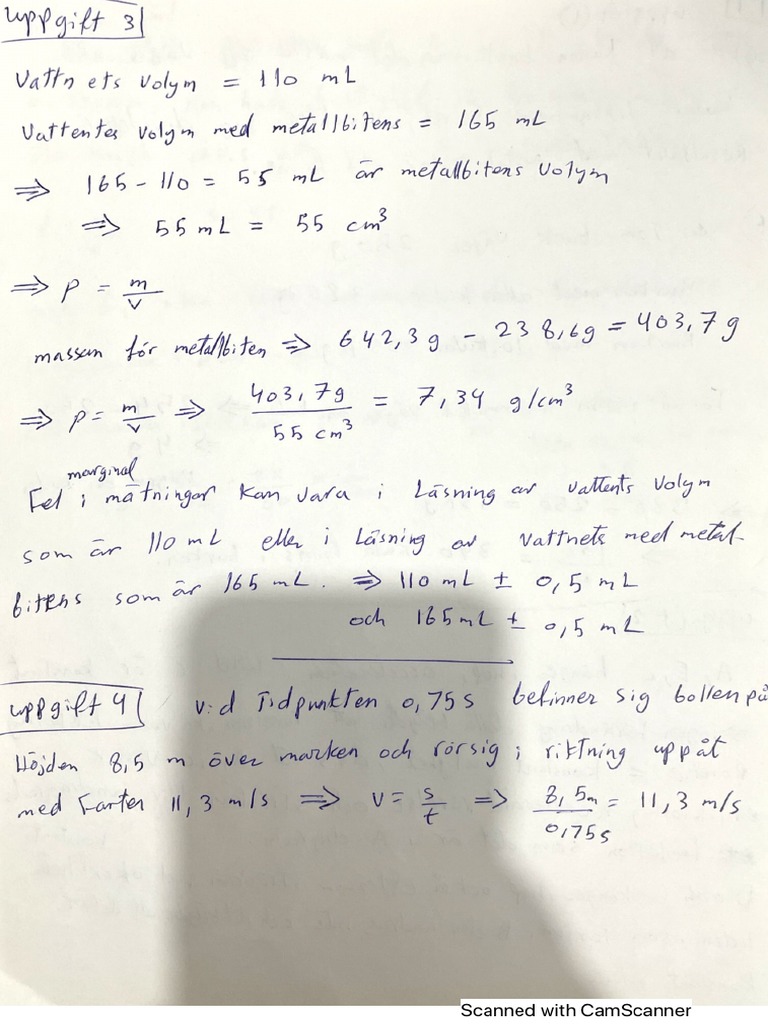 uppgift 3
Vattnets volym = 110 mL
Vattentes volym med metallbitens = 165 mL
⇒ 165 - 110 = 55 mL är metallbitens volym
⇒ 55 mL = 55 cm³
⇒ p = m/v
massan för metallbiten ⇒ 642,3 g - 238,6g = 403,7 g
⇒ p = m/v ⇒ 403,7g / 55 cm³ = 7,34 g/cm³
marginal
Fel i mätningar kan vara i Läsning av vattents volym
som är 110 mL eller i Läsning av vattnets med metal-
bitens som är 165 mL. ⇒ 110 mL ± 0,5 mL
och 165 mL ± 0,5 mL
uppgift 4 vid Tidpunkten 0,75 s befinner sig bollen på
Höjden 8,5 m över marken och rörsig i riktning uppåt
med Farten 11,3 m/s ⇒ v = s/t ⇒ 8,5m / 0,75s = 11,3 m/s
Scanned with CamScanner